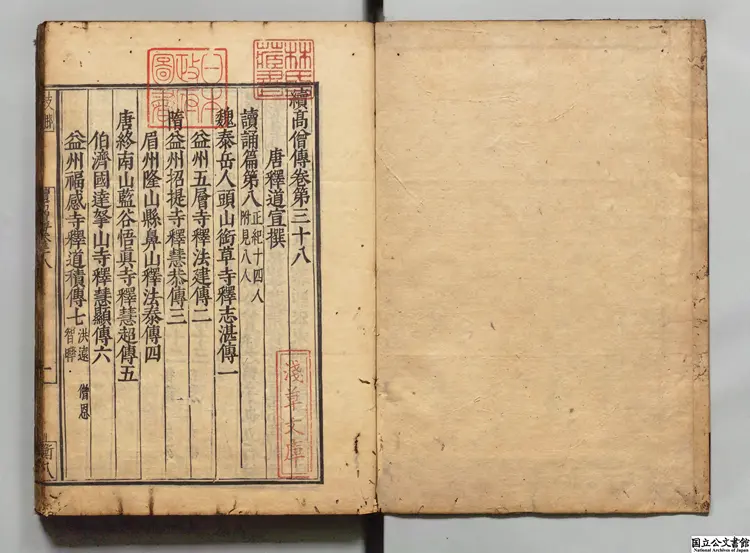 續高僧傳卷第三十八
唐釋道宣撰
讀誦篇第八 正紀十四人 附見八人
魏泰岳人頭山銜草寺釋志湛傳一
益州五層寺釋法建傳二
隋益州招提寺釋慧恭傳三
眉州隆山縣鼻山釋法泰傳四
唐終南山藍谷悟真寺釋慧超傳五
伯濟國達拏山寺釋慧顯傳六
益州福感寺釋道積傳七 洪遠 僧恩 智曄
林氏藏書
日本政府圖書
淺草文庫
国立公文書館
National Archives of Japan